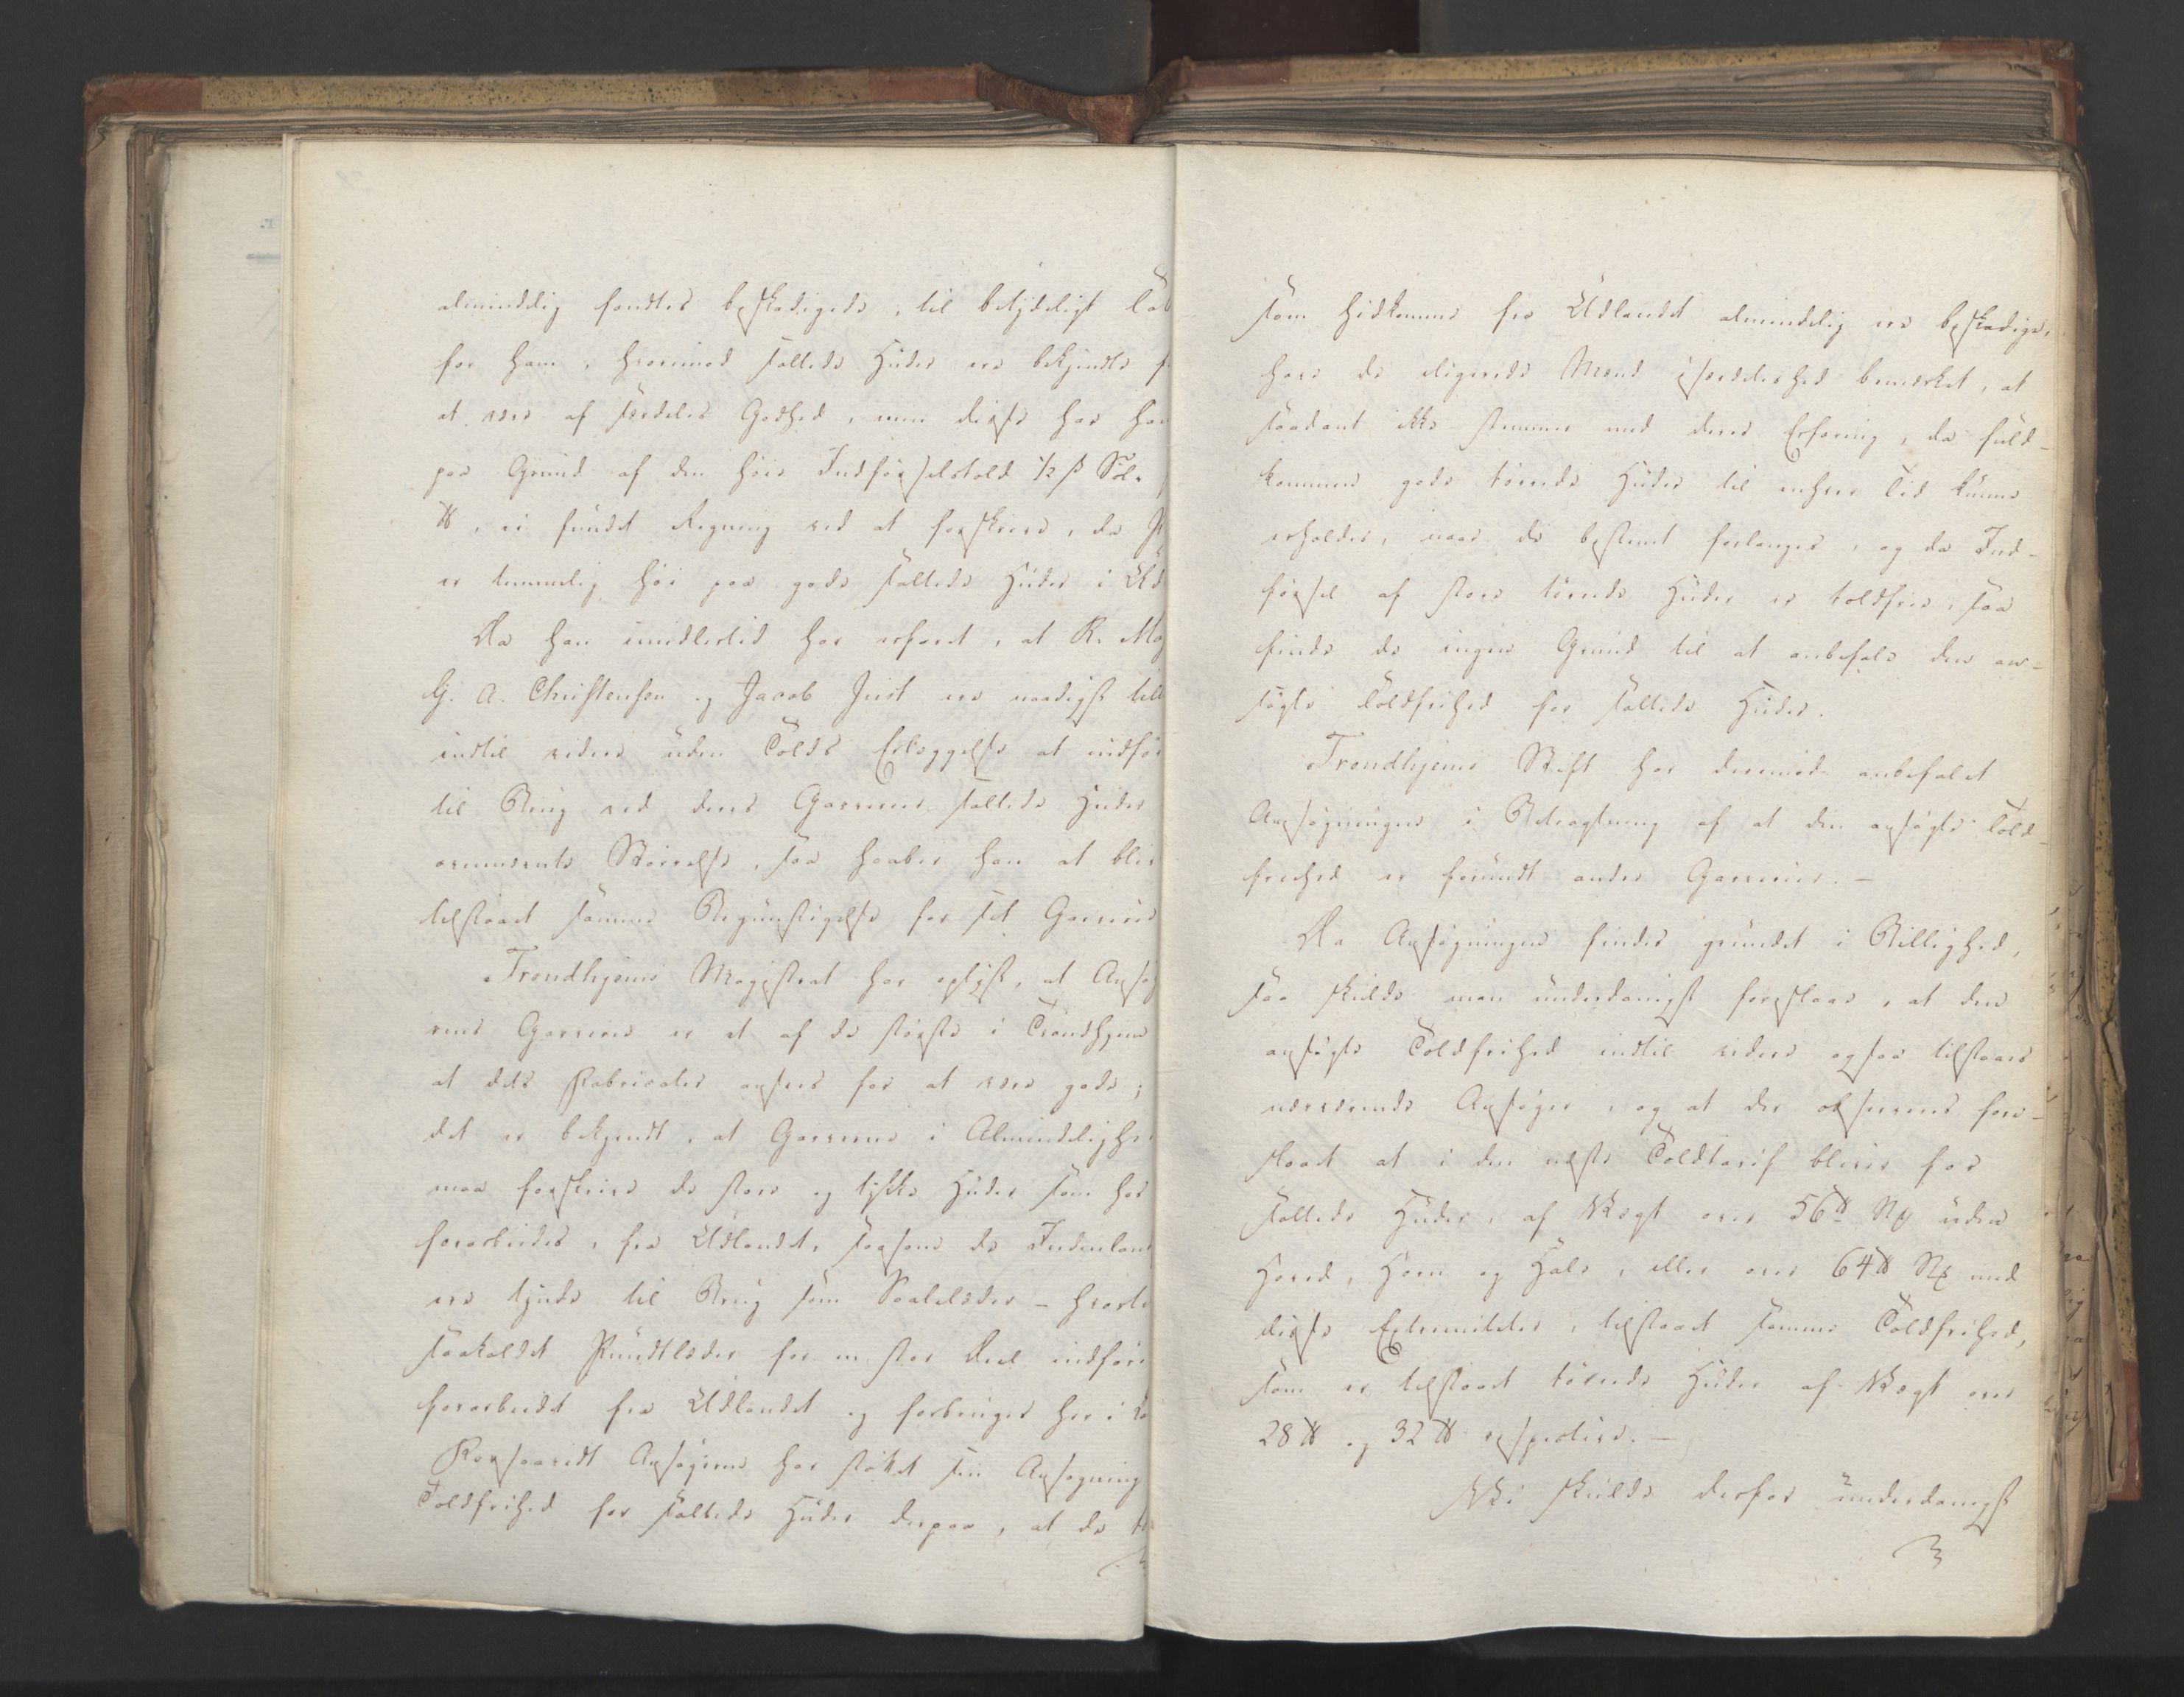 almindelig fandtes beskadigede, til betydeligt Tab
for ham, hvorimod saltede Huder ere bekjendte f
at være af særdeles Godhed, men disse har han
paa Grund af den høie Indførselstold ½ ß Søl.
℔, ei fundet Regning ved at forskrive, da P
er temmelig høi paa gode saltede Huder i Ud
Da han imidlertid har erfaret, at R. Møl
G. A. Christensen og Jacob Just ere naadigst till
indtil videre uden Tolds Erlæggelse at indfør
til Brug ved deres Garverie saltede Huder
ovennævnte Størrelse, saa haaber han at bliv
tilstaaet samme Begunstigelse for sit Garverie
Trondhjems Magistrat har oplyst, at Ansøg
rens Garverie er et af de største i Trondhjem
at dets Fabricater ansees for at være gode;
det er bekjendt, at Garverne i Almindelighe
maa forskrive de store og tykke Huder som her
forarbeides, fra Udlandet, saasom de Indenland
ere tjenlige til Brug som Saalelæder – hvorfo
saakaldet Pundtlæder for en stor Deel indføre
forarbeidet fra Udlandet og forbruges her i La
Forsaavidt Ansøgeren har støttet sin Ansøgning
Toldfrihed for saltede Huder derpaa, at de t
som hidkomme fra Udlandet almindelig ere beskadige,
have de eligerede Mænd isærdeleshed bemærket, at
saadant ikke stemmer med deres Erfaring, da fuld-
kommen gode tørrede Huder til enhver Tid kunne
erholdes, naar de bestemt forlanges, og da Ind-
førsel af store tørrede Huder er toldfrie, saa
finde de ingen Grund til at anbefale den an-
søgte Toldfrihed for saltede Huder.
Trondhjems Stift har derimod anbefalet
Ansøgningen i Betragtning af at den ansøgte Told-
friehed er forundt andre Garverier. –
Da Ansøgningen findes grundet i Billighed,
saa skulde man underdanigst foreslaae, at den
ansøgte Toldfrihed indtil videre ogsaa tilstaaes
nærværende Ansøger, og at der observeres fore-
slaaet at i den næste Toldtarif bliver for
saltede Huder, af Vægt over 56 ℔ N uden
Hoved, Horn og Hale, eller over 64 ℔ N med
disse Extremiteter, tilstaaet samme Toldfrihed,
som er tilstaaet tørrede Huder af Vægt over
28 ℔ og 32 ℔ respective. –
Vi skulde derfor underdanigst